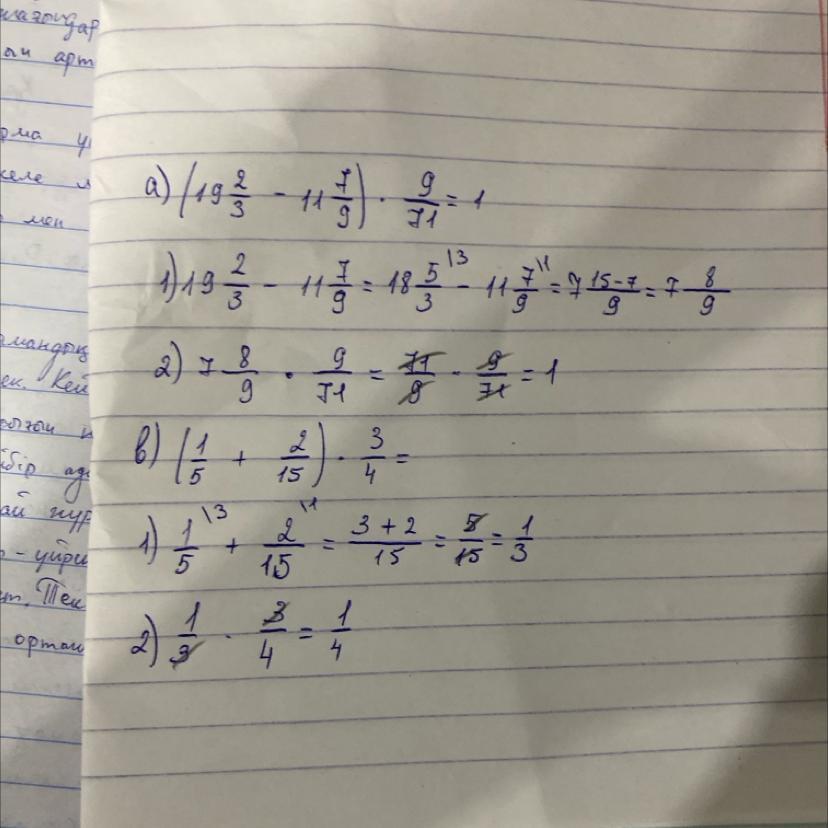 лағындар
ын арт
рма
келе
мен
мандық
ек. Кей
бір ад
ай жүр
- үйри
т. Тек
ортан
а) (19 2/3 - 11 7/9) · 9/71 = 1
1) 19 2/3 - 11 7/9 = 18 5/3 \3 - 11 7/9 \1 = 7 15-7/9 = 7 8/9
2) 7 8/9 · 9/71 = 71/9 · 9/71 = 1
в) (1/5 + 2/15) · 3/4 =
1) 1/5 \3 + 2/15 \1 = 3+2/15 = 5/15 = 1/3
2) 1/3 · 3/4 = 1/4